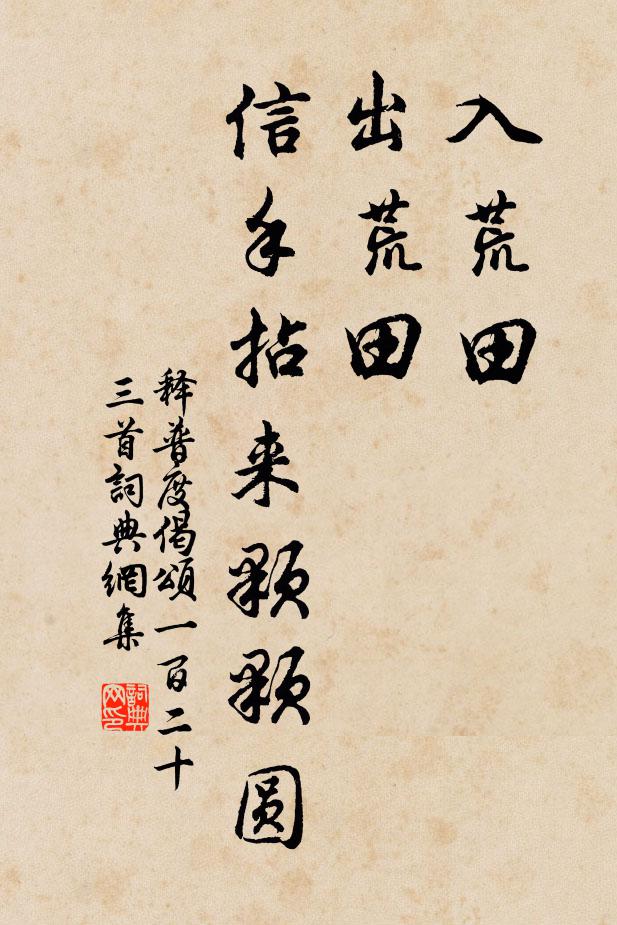 入荒田
出荒田
信手拈来颗颗圆
释普度偈頌一百二十
三首詞典網集
詞典
网印